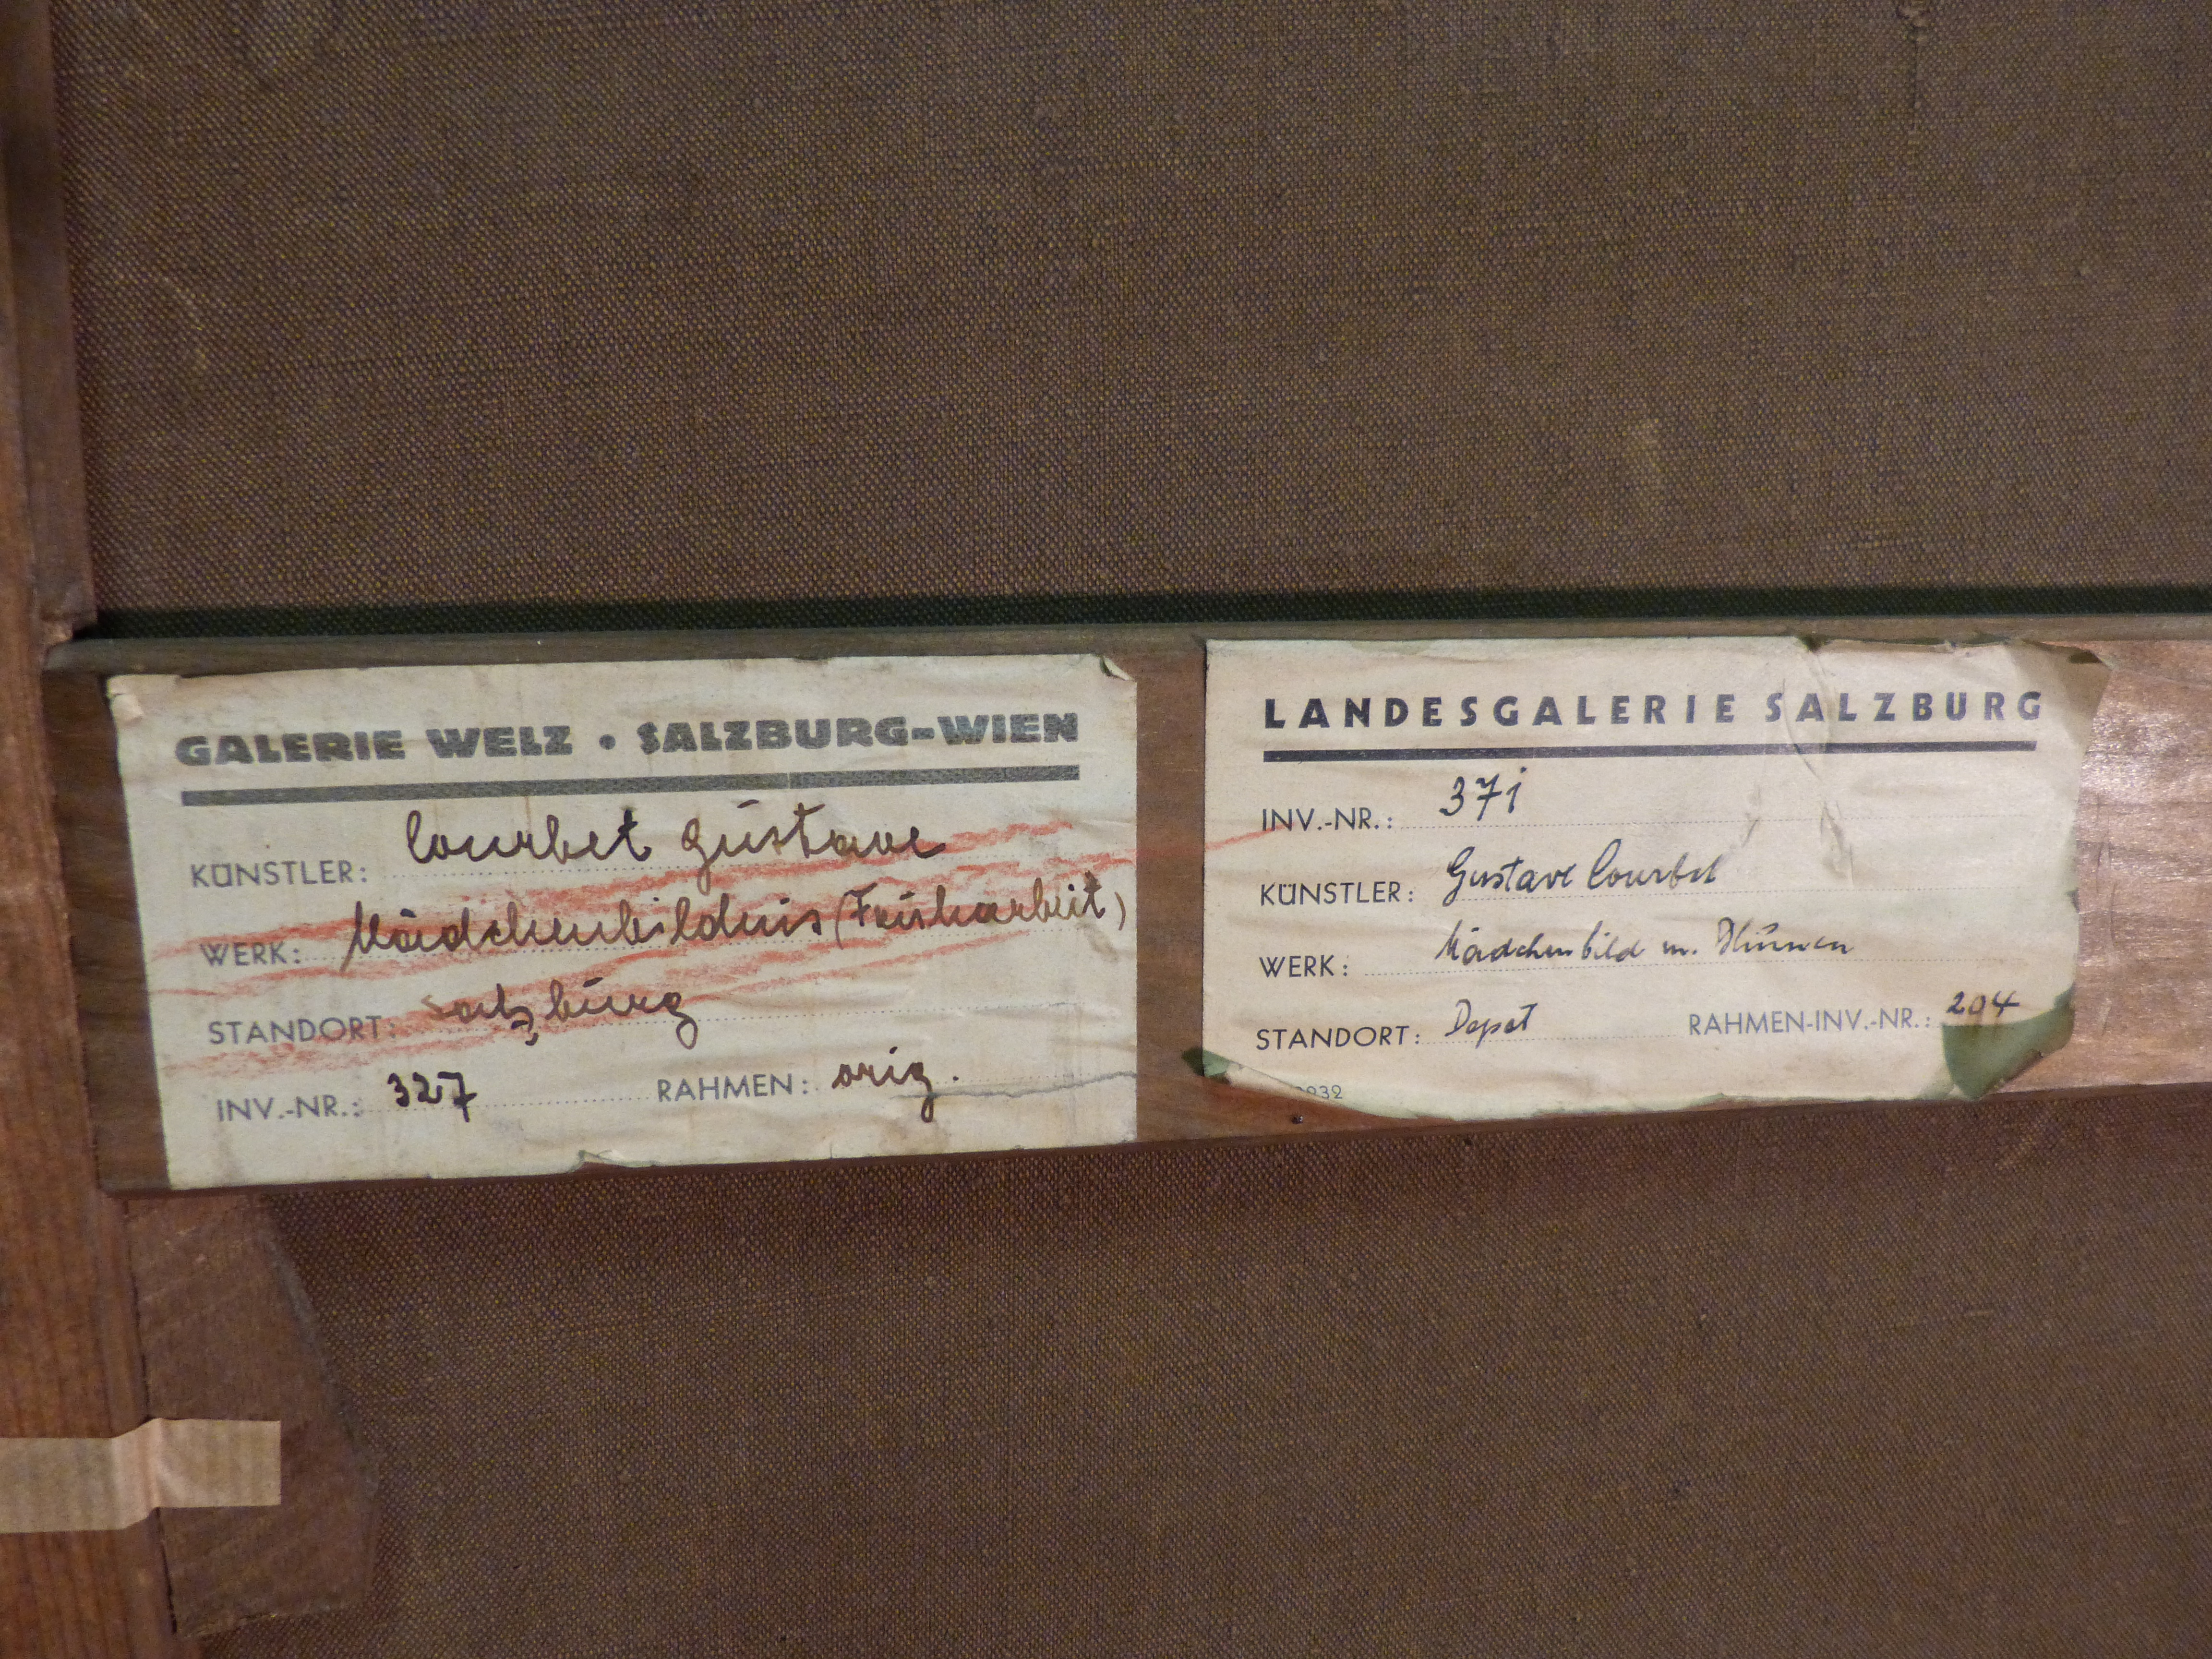 GALERIE WELZ • SALZBURG-WIEN
KÜNSTLER: Courbet Gustave
WERK: Mädchenbildnis (Früharbeit)
STANDORT: Salzburg
INV.-NR.: 327 RAHMEN: orig.
LANDESGALERIE SALZBURG
INV.-NR.: 371
KÜNSTLER: Gustave Courbet
WERK: Mädchenbild m. Blumen
STANDORT: Depot RAHMEN-INV.-NR.: 204